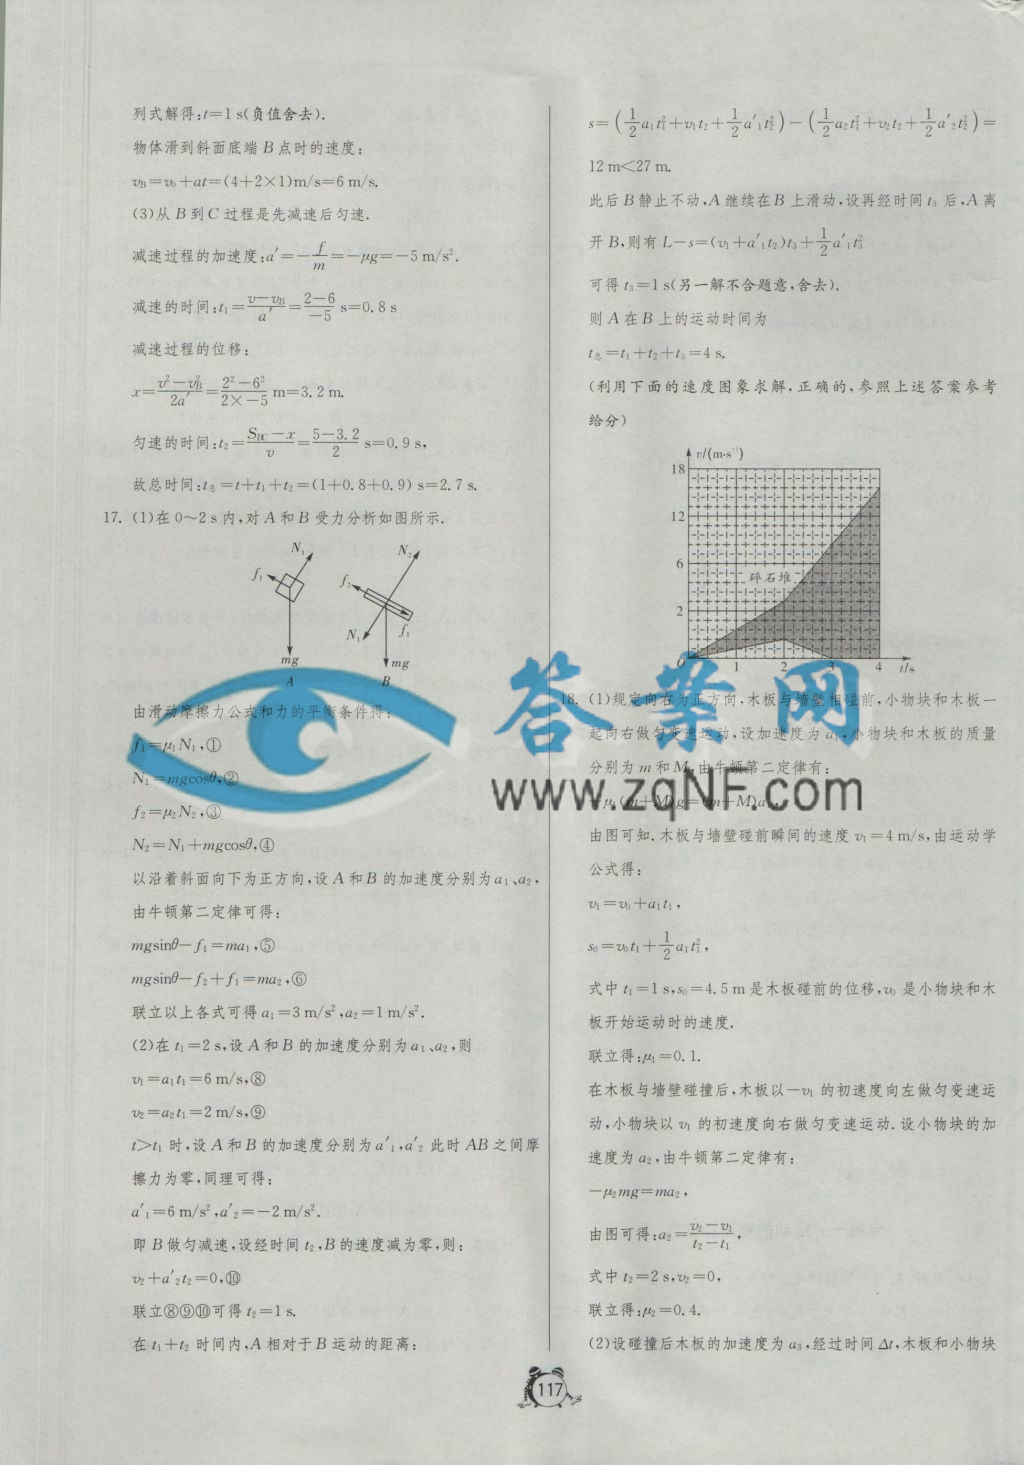 列式解得:t=1 s(负值舍去).
物体滑到斜面底端 B 点时的速度:
v_B=v₀+at=(4+2×1)m/s=6 m/s.
(3)从 B 到 C 过程是先减速后匀速.
减速过程的加速度:a′=-f/m=-μg=-5 m/s².
减速的时间:t₁=(v-v_B)/a′=(2-6)/(-5) s=0.8 s
减速过程的位移:
x=(v²-v_B²)/(2a′)=(2²-6²)/(2×-5) m=3.2 m.
匀速的时间:t₂=(S_BC-x)/v=(5-3.2)/2 s=0.9 s,
故总时间:t总=t+t₁+t₂=(1+0.8+0.9) s=2.7 s.
17. (1)在 0～2 s 内,对 A 和 B 受力分析如图所示.
N₁
f₁
mg
A
N₂
f₂
N₁
f₁
mg
B
由滑动摩擦力公式和力的平衡条件得:
f₁=μ₁N₁,①
N₁=mgcosθ,②
f₂=μ₂N₂,③
N₂=N₁+mgcosθ,④
以沿着斜面向下为正方向,设 A 和 B 的加速度分别为 a₁、a₂,
由牛顿第二定律可得:
mgsinθ-f₁=ma₁,⑤
mgsinθ-f₂+f₁=ma₂,⑥
联立以上各式可得 a₁=3 m/s²,a₂=1 m/s².
(2)在 t₁=2 s,设 A 和 B 的加速度分别为 a₁、a₂,则
v₁=a₁t₁=6 m/s,⑧
v₂=a₂t₁=2 m/s,⑨
t>t₁ 时,设 A 和 B 的加速度分别为 a′₁,a′₂ 此时 AB 之间摩
擦力为零,同理可得:
a′₁=6 m/s²,a′₂=-2 m/s².
即 B 做匀减速,设经时间 t₂,B 的速度减为零,则:
v₂+a′₂t₂=0,⑩
联立⑧⑨⑩可得 t₂=1 s.
在 t₁+t₂ 时间内,A 相对于 B 运动的距离:
s=(1/2 a₁t₁²+v₁t₂+1/2 a′₁t₂²)-(1/2 a₂t₁²+v₂t₂+1/2 a′₂t₂²)=
12 m<27 m.
此后 B 静止不动,A 继续在 B 上滑动,设再经时间 t₃ 后,A 离
开 B,则有 L-s=(v₁+a′₁t₂)t₃+1/2 a′₁t₃²
可得 t₃=1 s(另一解不合题意,舍去).
则 A 在 B 上的运动时间为
t总=t₁+t₂+t₃=4 s.
(利用下面的速度图象求解,正确的,参照上述答案参考
给分)
v/(m·s⁻¹)
18
12
6
2
碎石堆
O 1 2 3 4 t/s
18. (1)规定向右为正方向,木板与墙壁相碰前,小物块和木板一
起向右做匀变速运动,设加速度为 a₁,小物块和木板的质量
分别为 m 和 M,由牛顿第二定律有:
-μ₁(m+M)g=(m+M)a₁,
由图可知.木板与墙壁碰前瞬间的速度 v₁=4 m/s,由运动学
公式得:
v₁=v₀+a₁t₁,
s₀=v₀t₁+1/2 a₁t₁²,
式中 t₁=1 s,s₀=4.5 m 是木板碰前的位移,v₀ 是小物块和木
板开始运动时的速度.
联立得:μ₁=0.1.
在木板与墙壁碰撞后,木板以-v₁ 的初速度向左做匀变速运
动,小物块以 v₁ 的初速度向右做匀变速运动.设小物块的加
速度为 a₂,由牛顿第二定律有:
-μ₂mg=ma₂,
由图可得:a₂=(v₂-v₁)/(t₂-t₁),
式中 t₂=2 s,v₂=0,
联立得:μ₂=0.4.
(2)设碰撞后木板的加速度为 a₃,经过时间 Δt,木板和小物块
117
答案网
www.zqNF.com